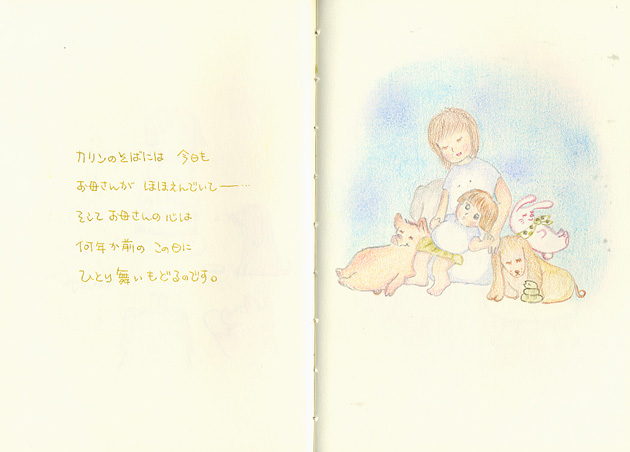 カリンのそばには 今日も
お母さんが ほほえんでいて―…
そして お母さんの心は
何年か前の この日に
ひとり舞いもどるのです。